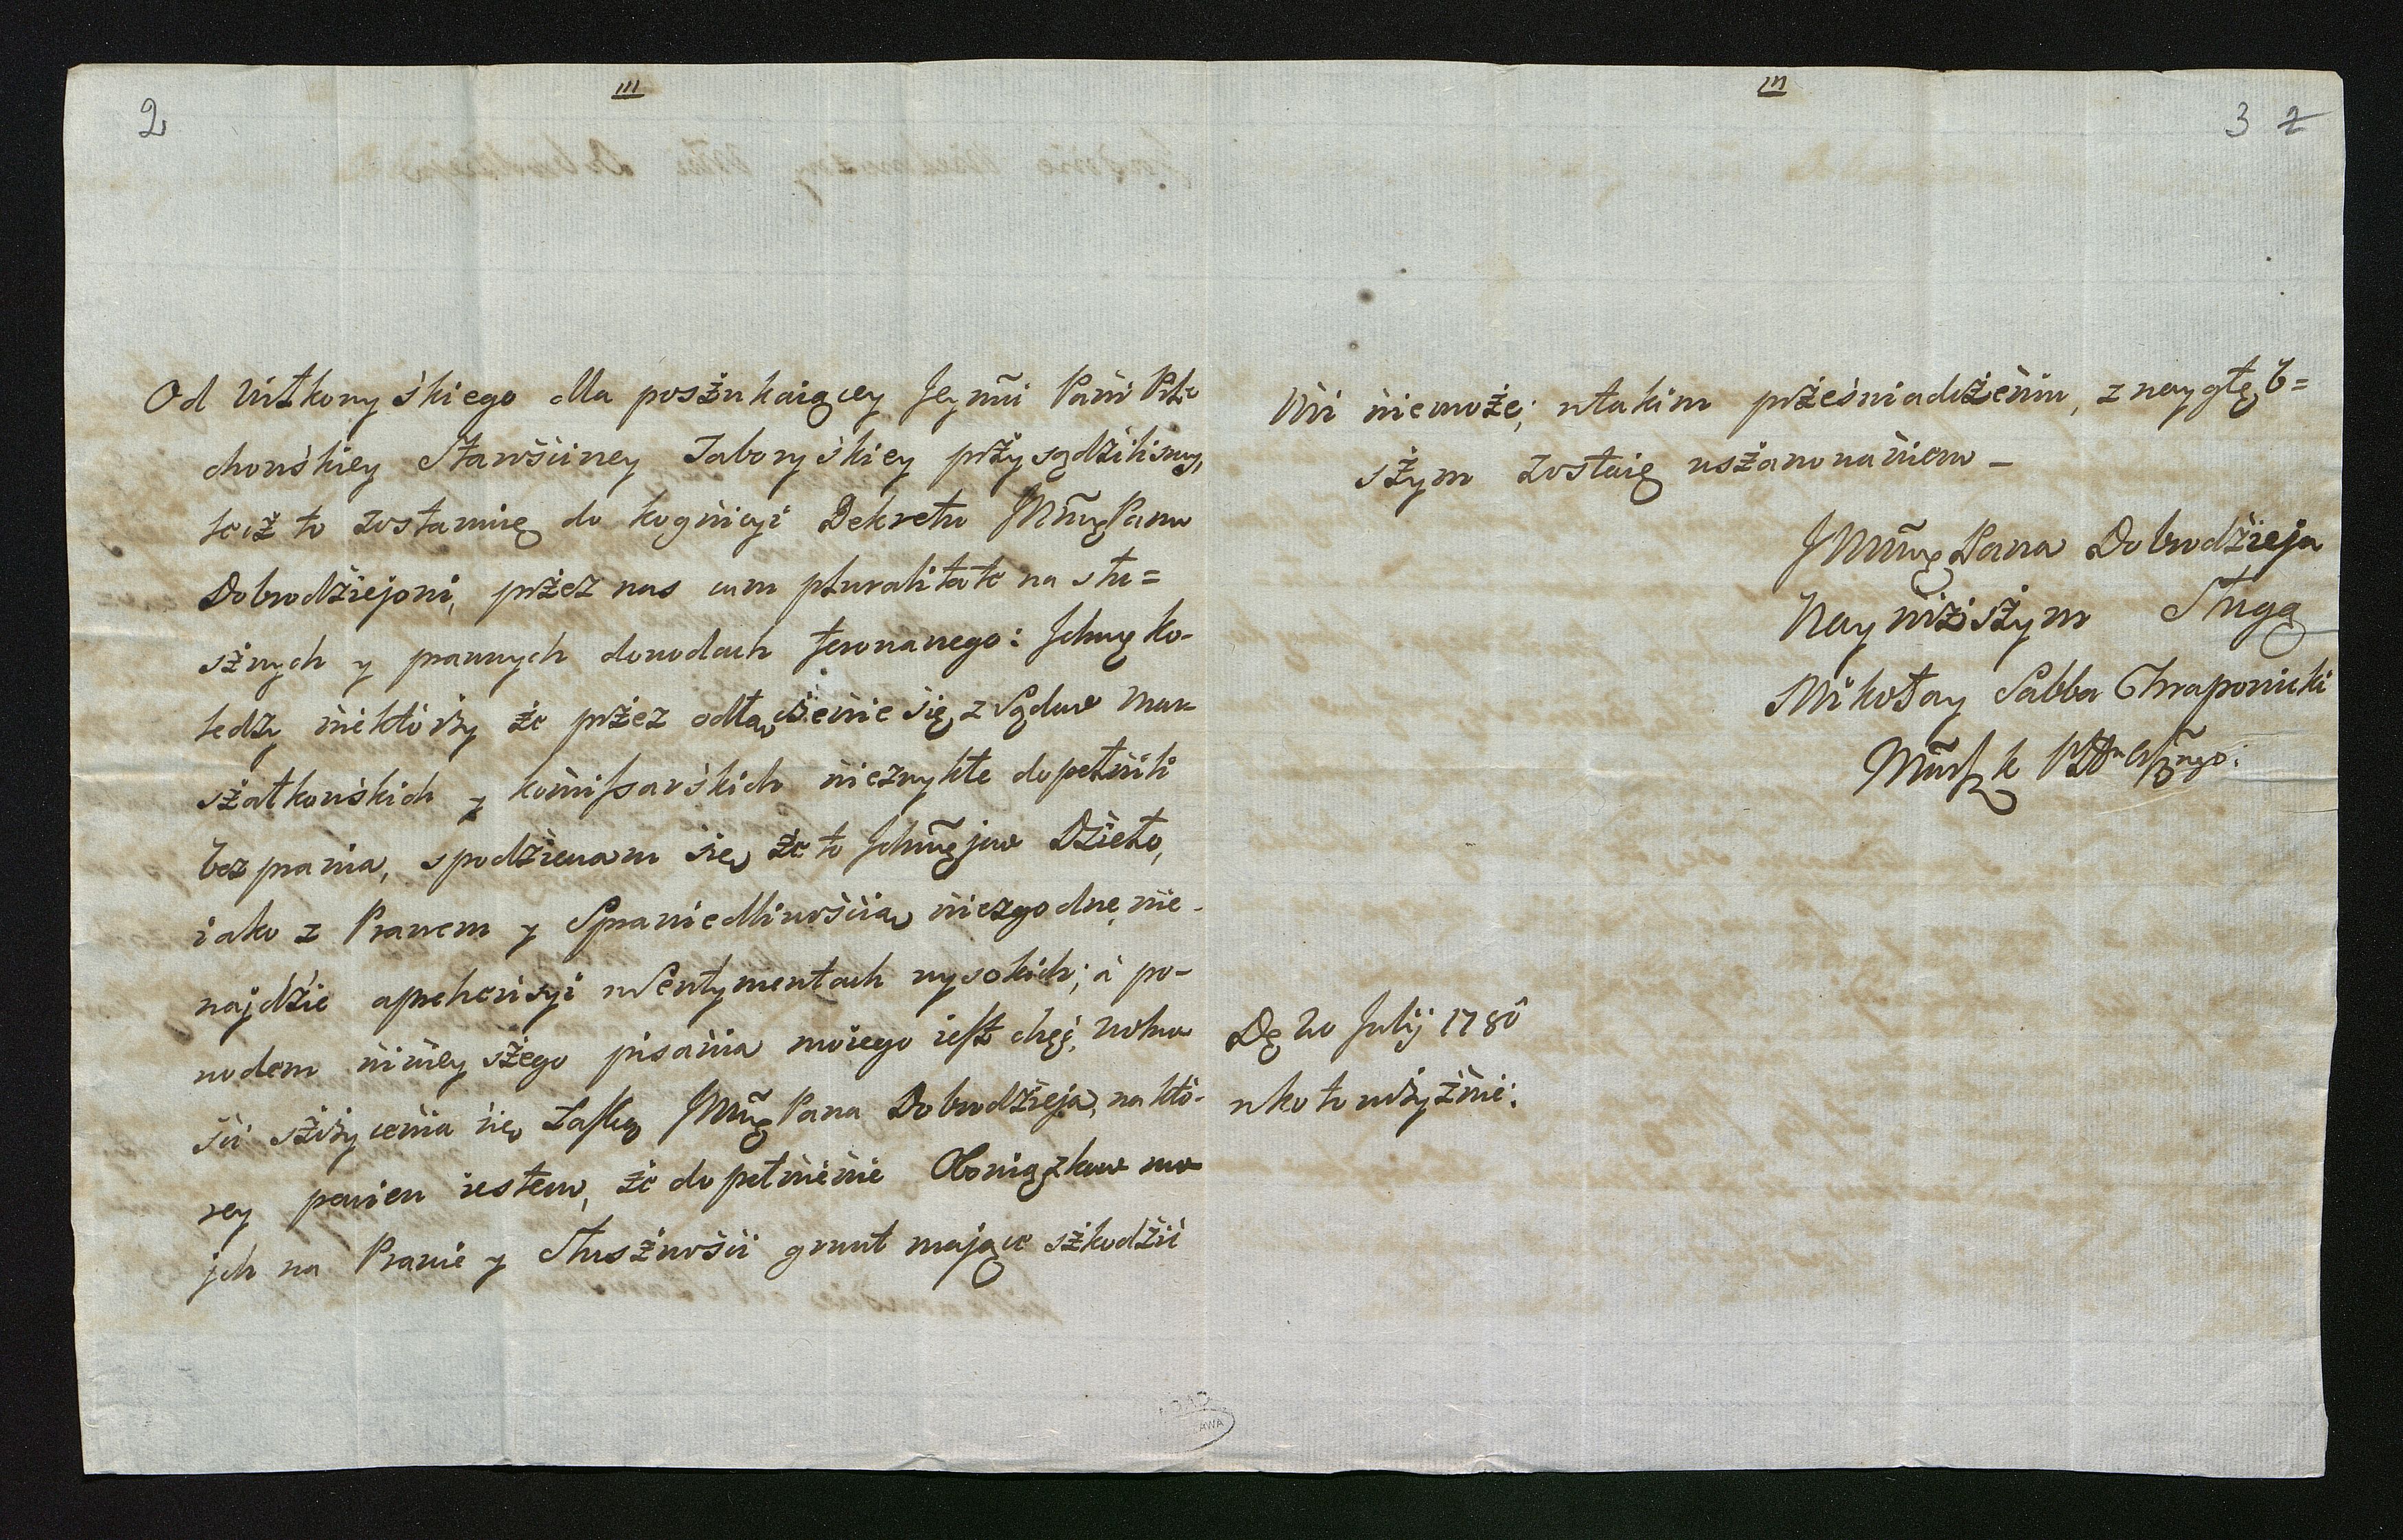 2
III
Od Witkowyskiego dla poszukaiącey Jeymći Pani
chowskiey Starościney Taboryskiey przysądziliśmy,
też to zostawię do kognicyi Dekretu JWmę Panu
Dobrodziejowi, przez nas cum pluralitate na słu=
sznych y prawnych dowodach ferowanego: Ichmę Ko-
ledzy niektórzy że przez odłączenie się z Sądów Mar-
szałkowskich y kommissarskich niezwykłe dopełnili
bezprawia, spodziewam się że to Ichmę jow Dzieło,
iako z Prawem y Sprawiedliwościa niezgodne nie-
najdzie aprehensyi wSentymentach wysokich; a po-
wodem ninieyszego pisania moiego iest chęć, wolno
ści szczycenia się Łaską JWmę Pana Dobrodzieja, na któ-
rey pewien iestem, że dopełnienie Obowiązkow mo
jch na Prawie y Słuszności grunt mające szkodzić
III
3 2
Mi niemoże; wtakim przeświadczeniu, z naygłęb=
szym zostaię uszanowaniem -
JWmę Pana Dobrodzieja
Nayniższym Sługą
Mikołay Sabba Chrapowicki
D 20 Julij 1780